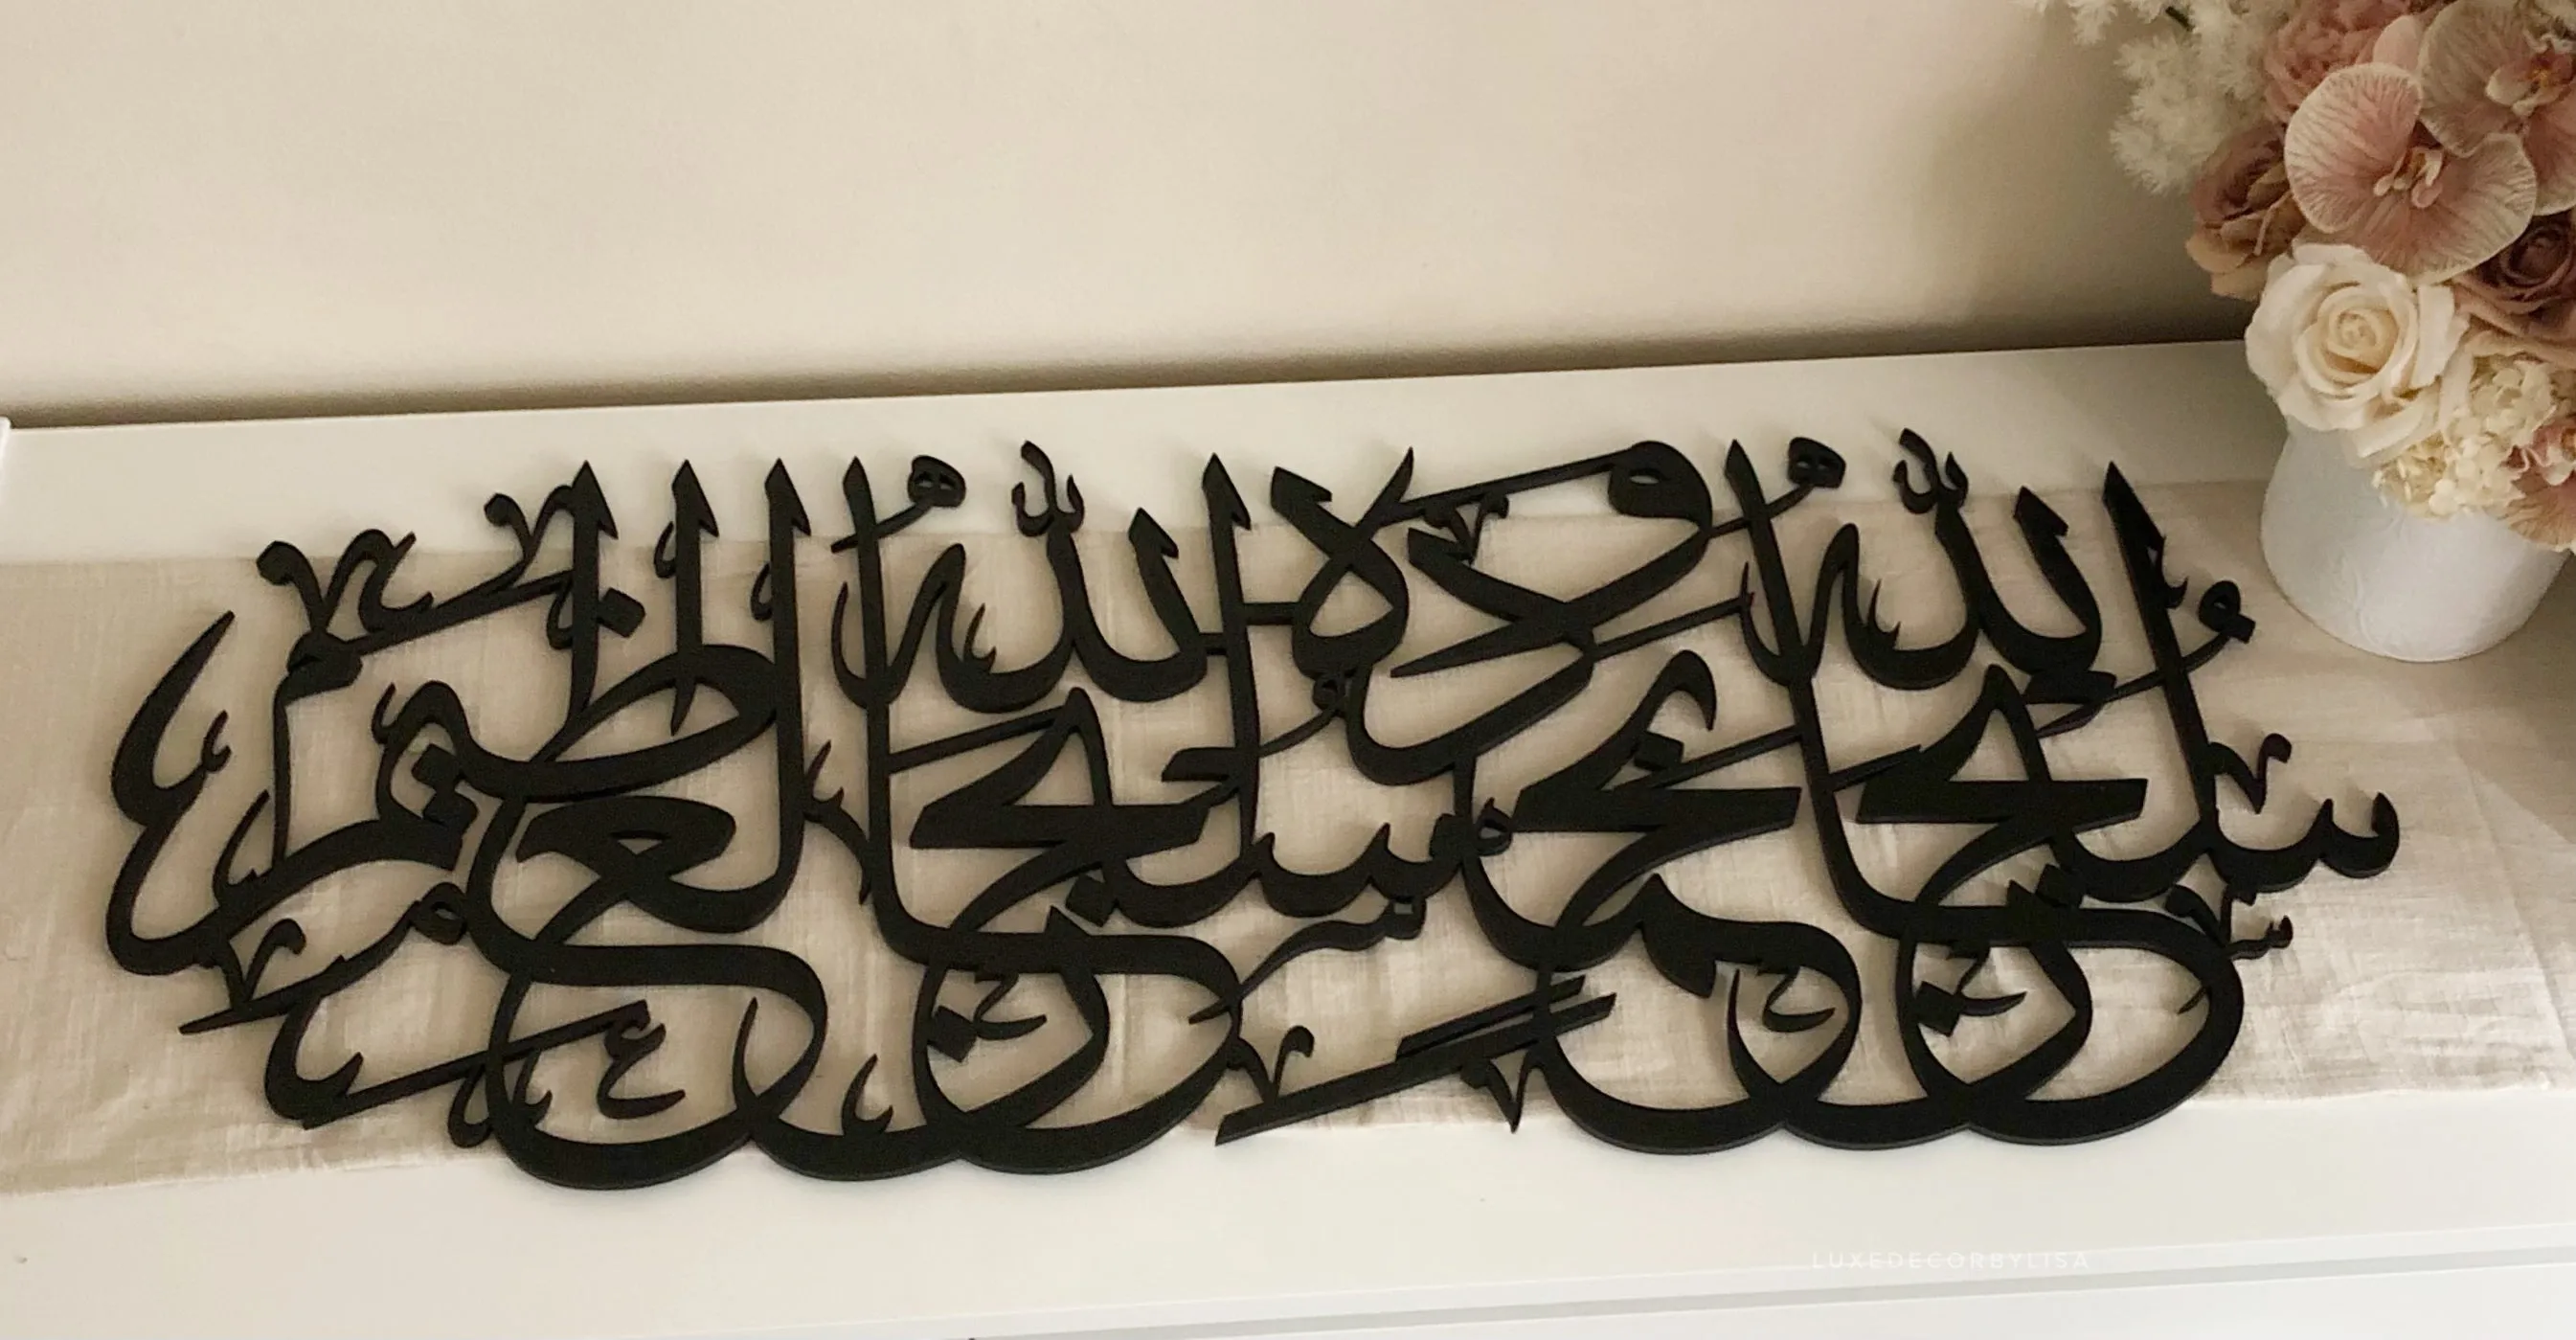 سُبْحَانَ اللهِ وَبِحَمْدِهِ سُبْحَانَ اللهِ الْعَظِيمِ
LUXEDECORBYLISA